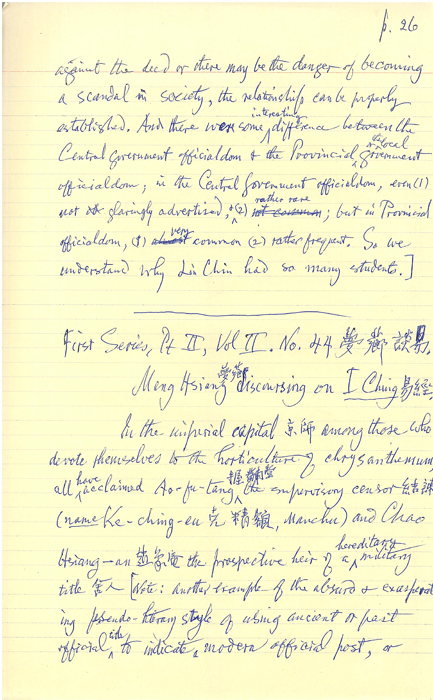 p. 26
against the deed or there may be the danger of becoming
a scandal in society, the relationships can be properly
established. And there were some interesting difference between the
Central Government officialdom & the Provincial or local government
officialdom; in the Central Government officialdom, even (1)
not glaringly advertised, & (2) rather rare not common; but in Provincial
officialdom, (1) almost very common (2) rather frequent. So we
understand why Lin Chin had so many students.]
First Series, Pt II, Vol II. No. 44 夢薌談易.
Meng Hsiang 夢薌 discoursing on I Ching 易經
In the imperial capital 京師 among those who
devote themselves to the horticulture of chrysanthemum
all have acclaimed Ao-fu-tang the supervisory censor
(name Ke-ching-eu 克精額, Manchu) and Chao
Hsiang-an the prospective heir of a hereditary military
title 舍人 [Note: another example of the absurd & exasperat
ing pseudo-literary style of using ancient or past
official title to indicate a modern official post, or